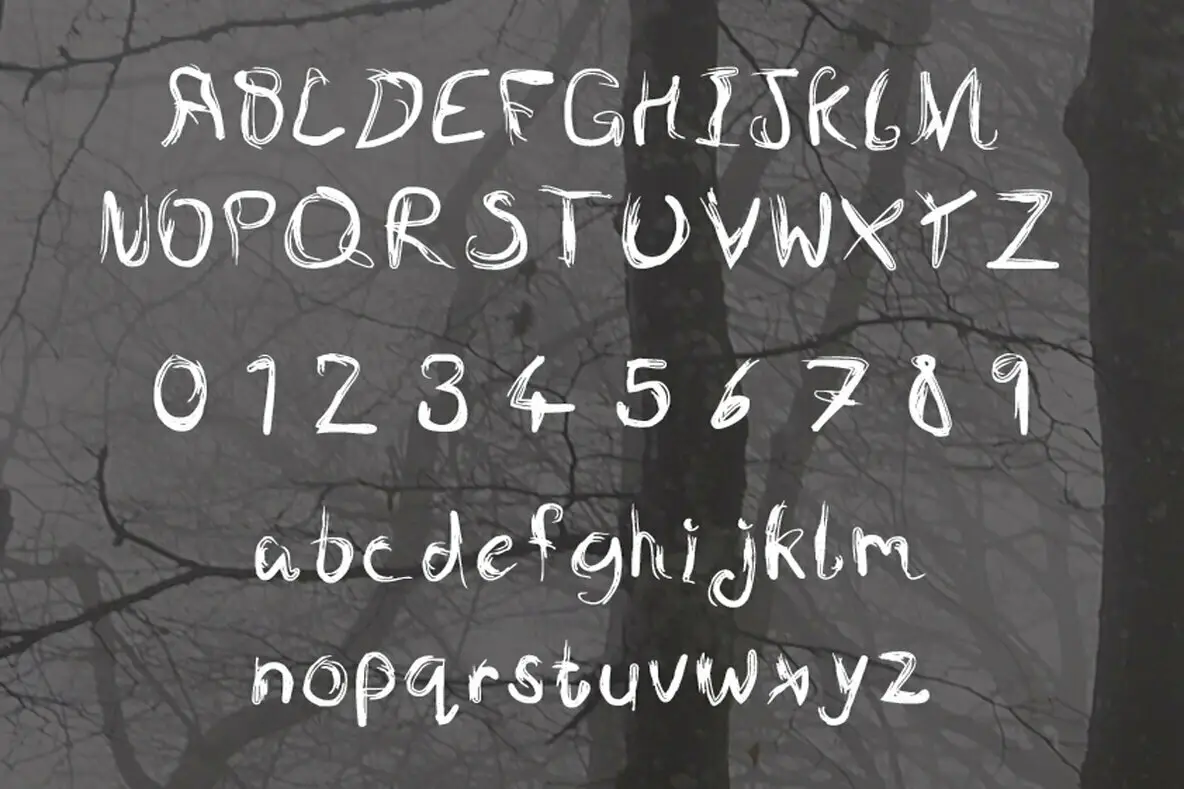 ABCDEFGHIJKLM
NOPQRSTUVWXYZ
0 1 2 3 4 5 6 7 8 9
abcdefghijklm
nopqrstuvwxyz